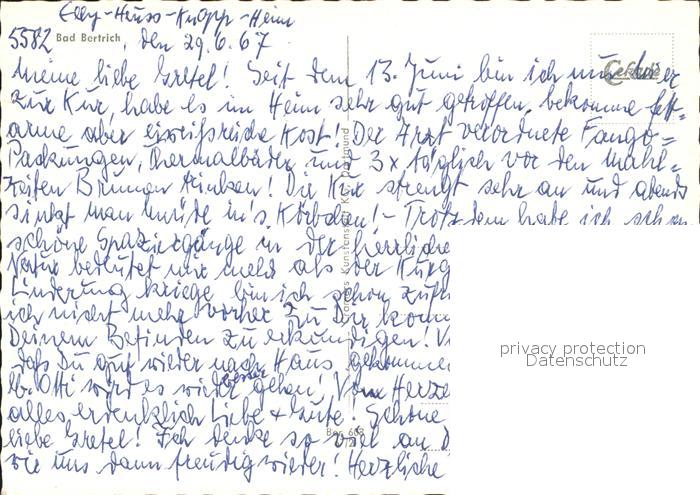 Elly-Heuss-Knapp-Heim
5582 Bad Bertrich, den 29.6.67
Meine liebe Gretel! Seit dem 13. Juni bin ich nun hier
zur Kur, habe es im Heim sehr gut getroffen, bekomme fett=
arme aber eiweißreiche Kost! Der Arzt verordnete Fango=
Packungen, Thermalbäder und 3x täglich vor den Mahl=
zeiten Brunnen trinken! Die Kur strengt sehr an und abends
sinkt man müde in's Körbchen! - Trotzdem habe ich schon
schöne Spaziergänge in der herrliche
Natur bedeutet mir mehr als der Kurg
Linderung kriege bin ich schon zufr
ich nicht mehr vorher zu Dir komm
Deinem Befinden zu erkundigen!
daß Du gut wieder nach Haus gekommen
lb. Otti wird es wieder besser gehen! Von Herze
alles erdenklich Liebe + Gute! Schöne
liebe Gretel! Ich denke so viel an D
wir uns dann freudig wieder! Herzliche
Cekade
Cramers Kunstanstalt KG., Dortmund
Ber 668
privacy protection
Datenschutz